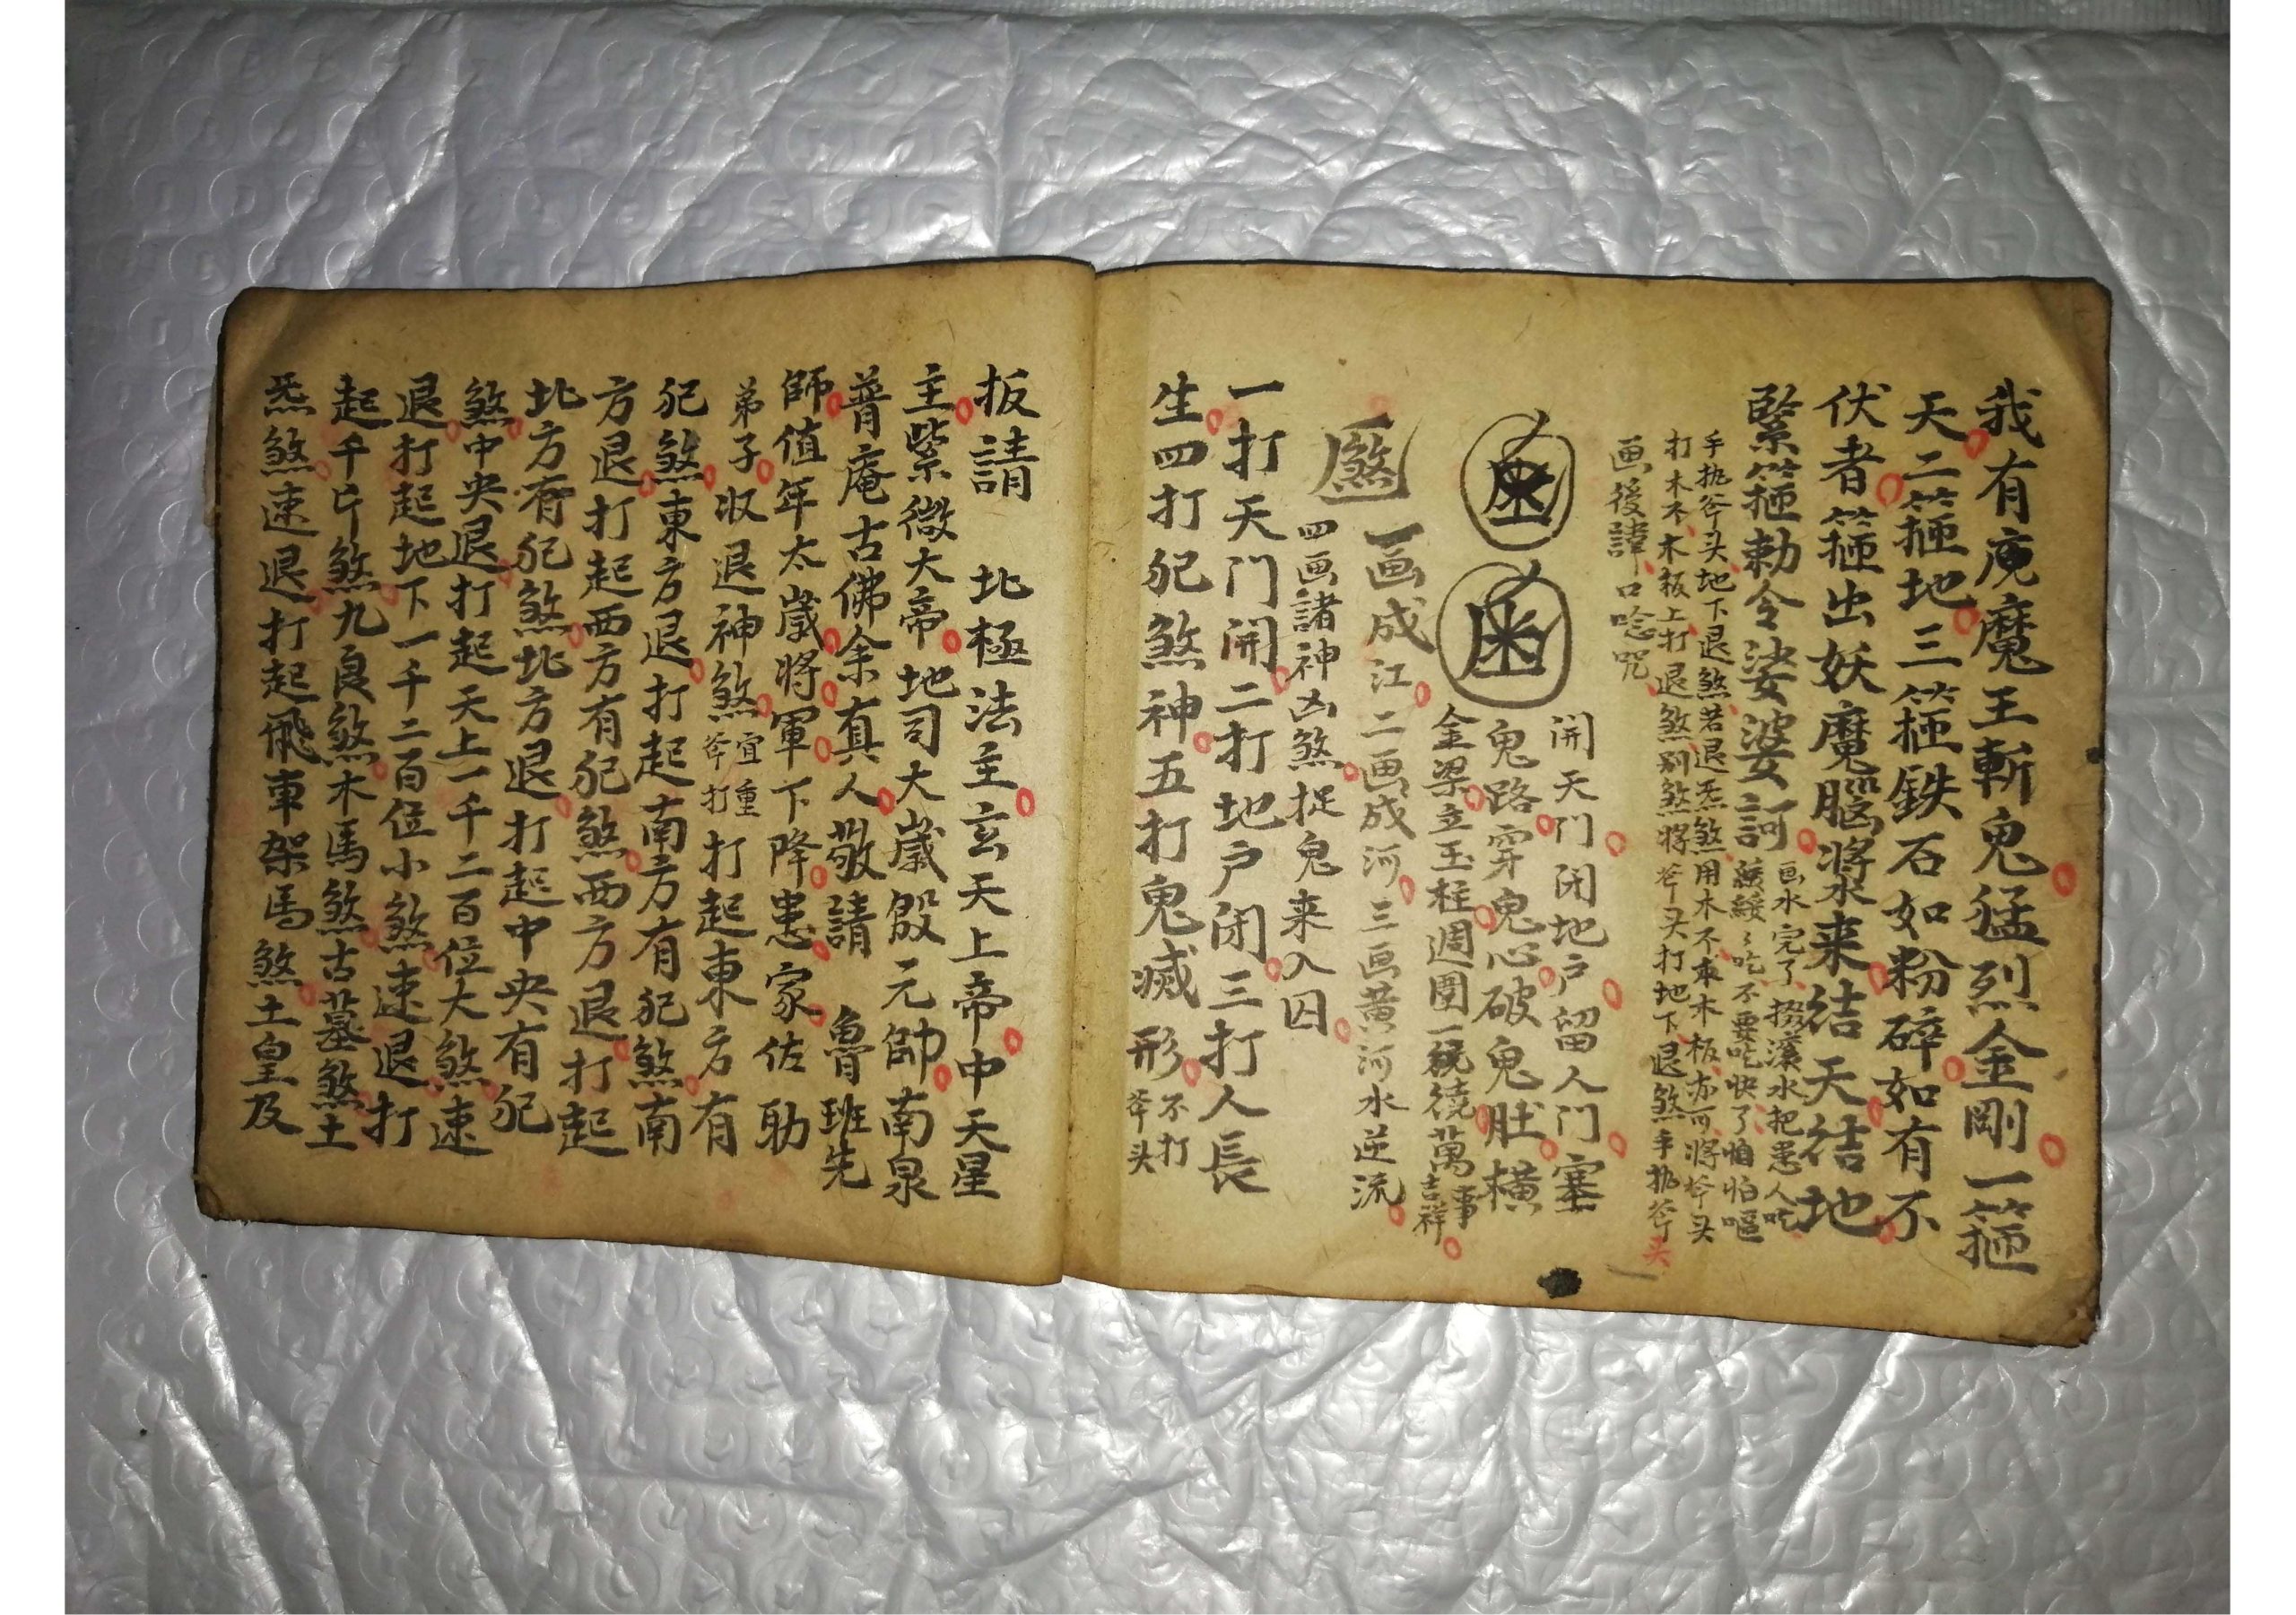 我有魔王斬鬼猛烈金剛一箍
天二箍地三箍鉄石如粉碎如有不
伏者箍出妖魔腦將來結天結地
緊箍勅令娑婆訶
画水完了撈溪水把患人吃
緩緩〻吃不要吃快了怕怕嘔
手执斧头地下退煞若退炁煞用木不來木板亦可將斧头
打木不木板上打退煞别煞將斧头打地下退煞手执斧头
画後諱口唸咒
開天门闭地户留人门塞
鬼路穿鬼心破鬼肚橫
金梁立玉柱週圍一繞繞萬事吉祥
煞一画成江二画成河三画黄河水逆流
四画諸神凶煞捉鬼来入囚
一打天门開二打地户闭三打人長
生四打犯煞神五打鬼滅形不打斧头
扳請 北極法主玄天上帝中天星
主紫微大帝地司大歲殷元帥南泉
普庵古佛余真人敬請 魯班先
師值年太歲將軍下降患家佐助
弟子收退神煞宜重斧打打起東方有
犯煞東方退打起南方有犯煞南
方退打起西方有犯煞西方退打起
北方有犯煞北方退打起中央有犯
煞中央退打起天上一千二百位大煞速
退打起地下一千二百位小煞速退打
起千斤煞九良煞木馬煞古墓煞土
炁煞速退打起飛車架馬煞土皇及